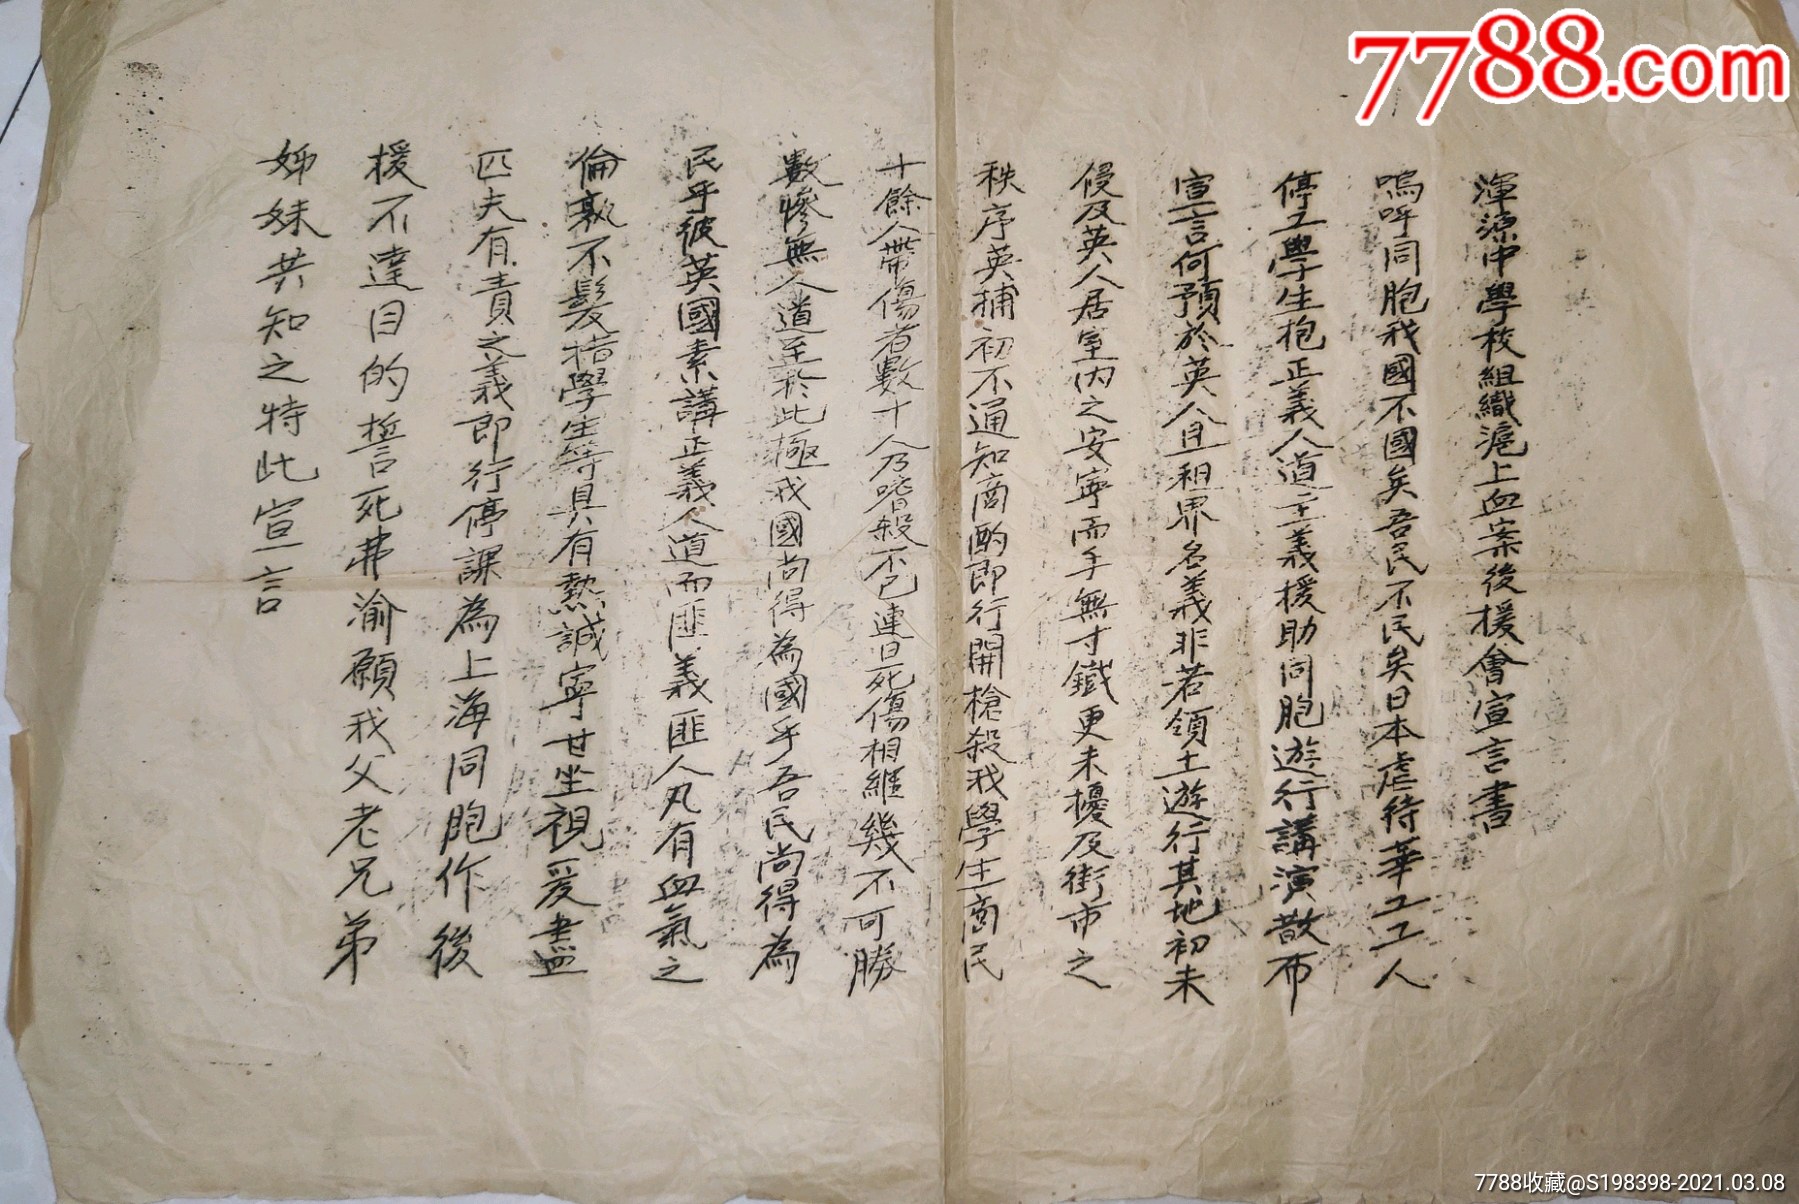 渾源中學校組織滬上血案後援會宣言書
嗚呼同胞我國不國矣吾民不民矣日本虐待華工工人
停工學生抱正義人道主義援助同胞遊行講演散布
宣言何預於英人且租界名義非若領土遊行其地初未
侵及英人居室內之安寧而手無寸鐵更未擾及街市之
秩序英捕初不通知商酌即行開槍殺我學生商民
十餘人帶傷者數十人乃嗜殺不已連日死傷相繼幾不可勝
數慘無人道至於此極我國尚得為國乎吾民尚得為
民乎彼英國素講正義人道而匪義匪人凡有血氣之
倫孰不髮指學生等具有熱誠寧甘坐視爰盡
匹夫有責之義即行停課為上海同胞作後
援不達目的誓死弗渝願我父老兄弟
姊妹共知之特此宣言
7788.com
7788收藏@S198398-2021.03.08